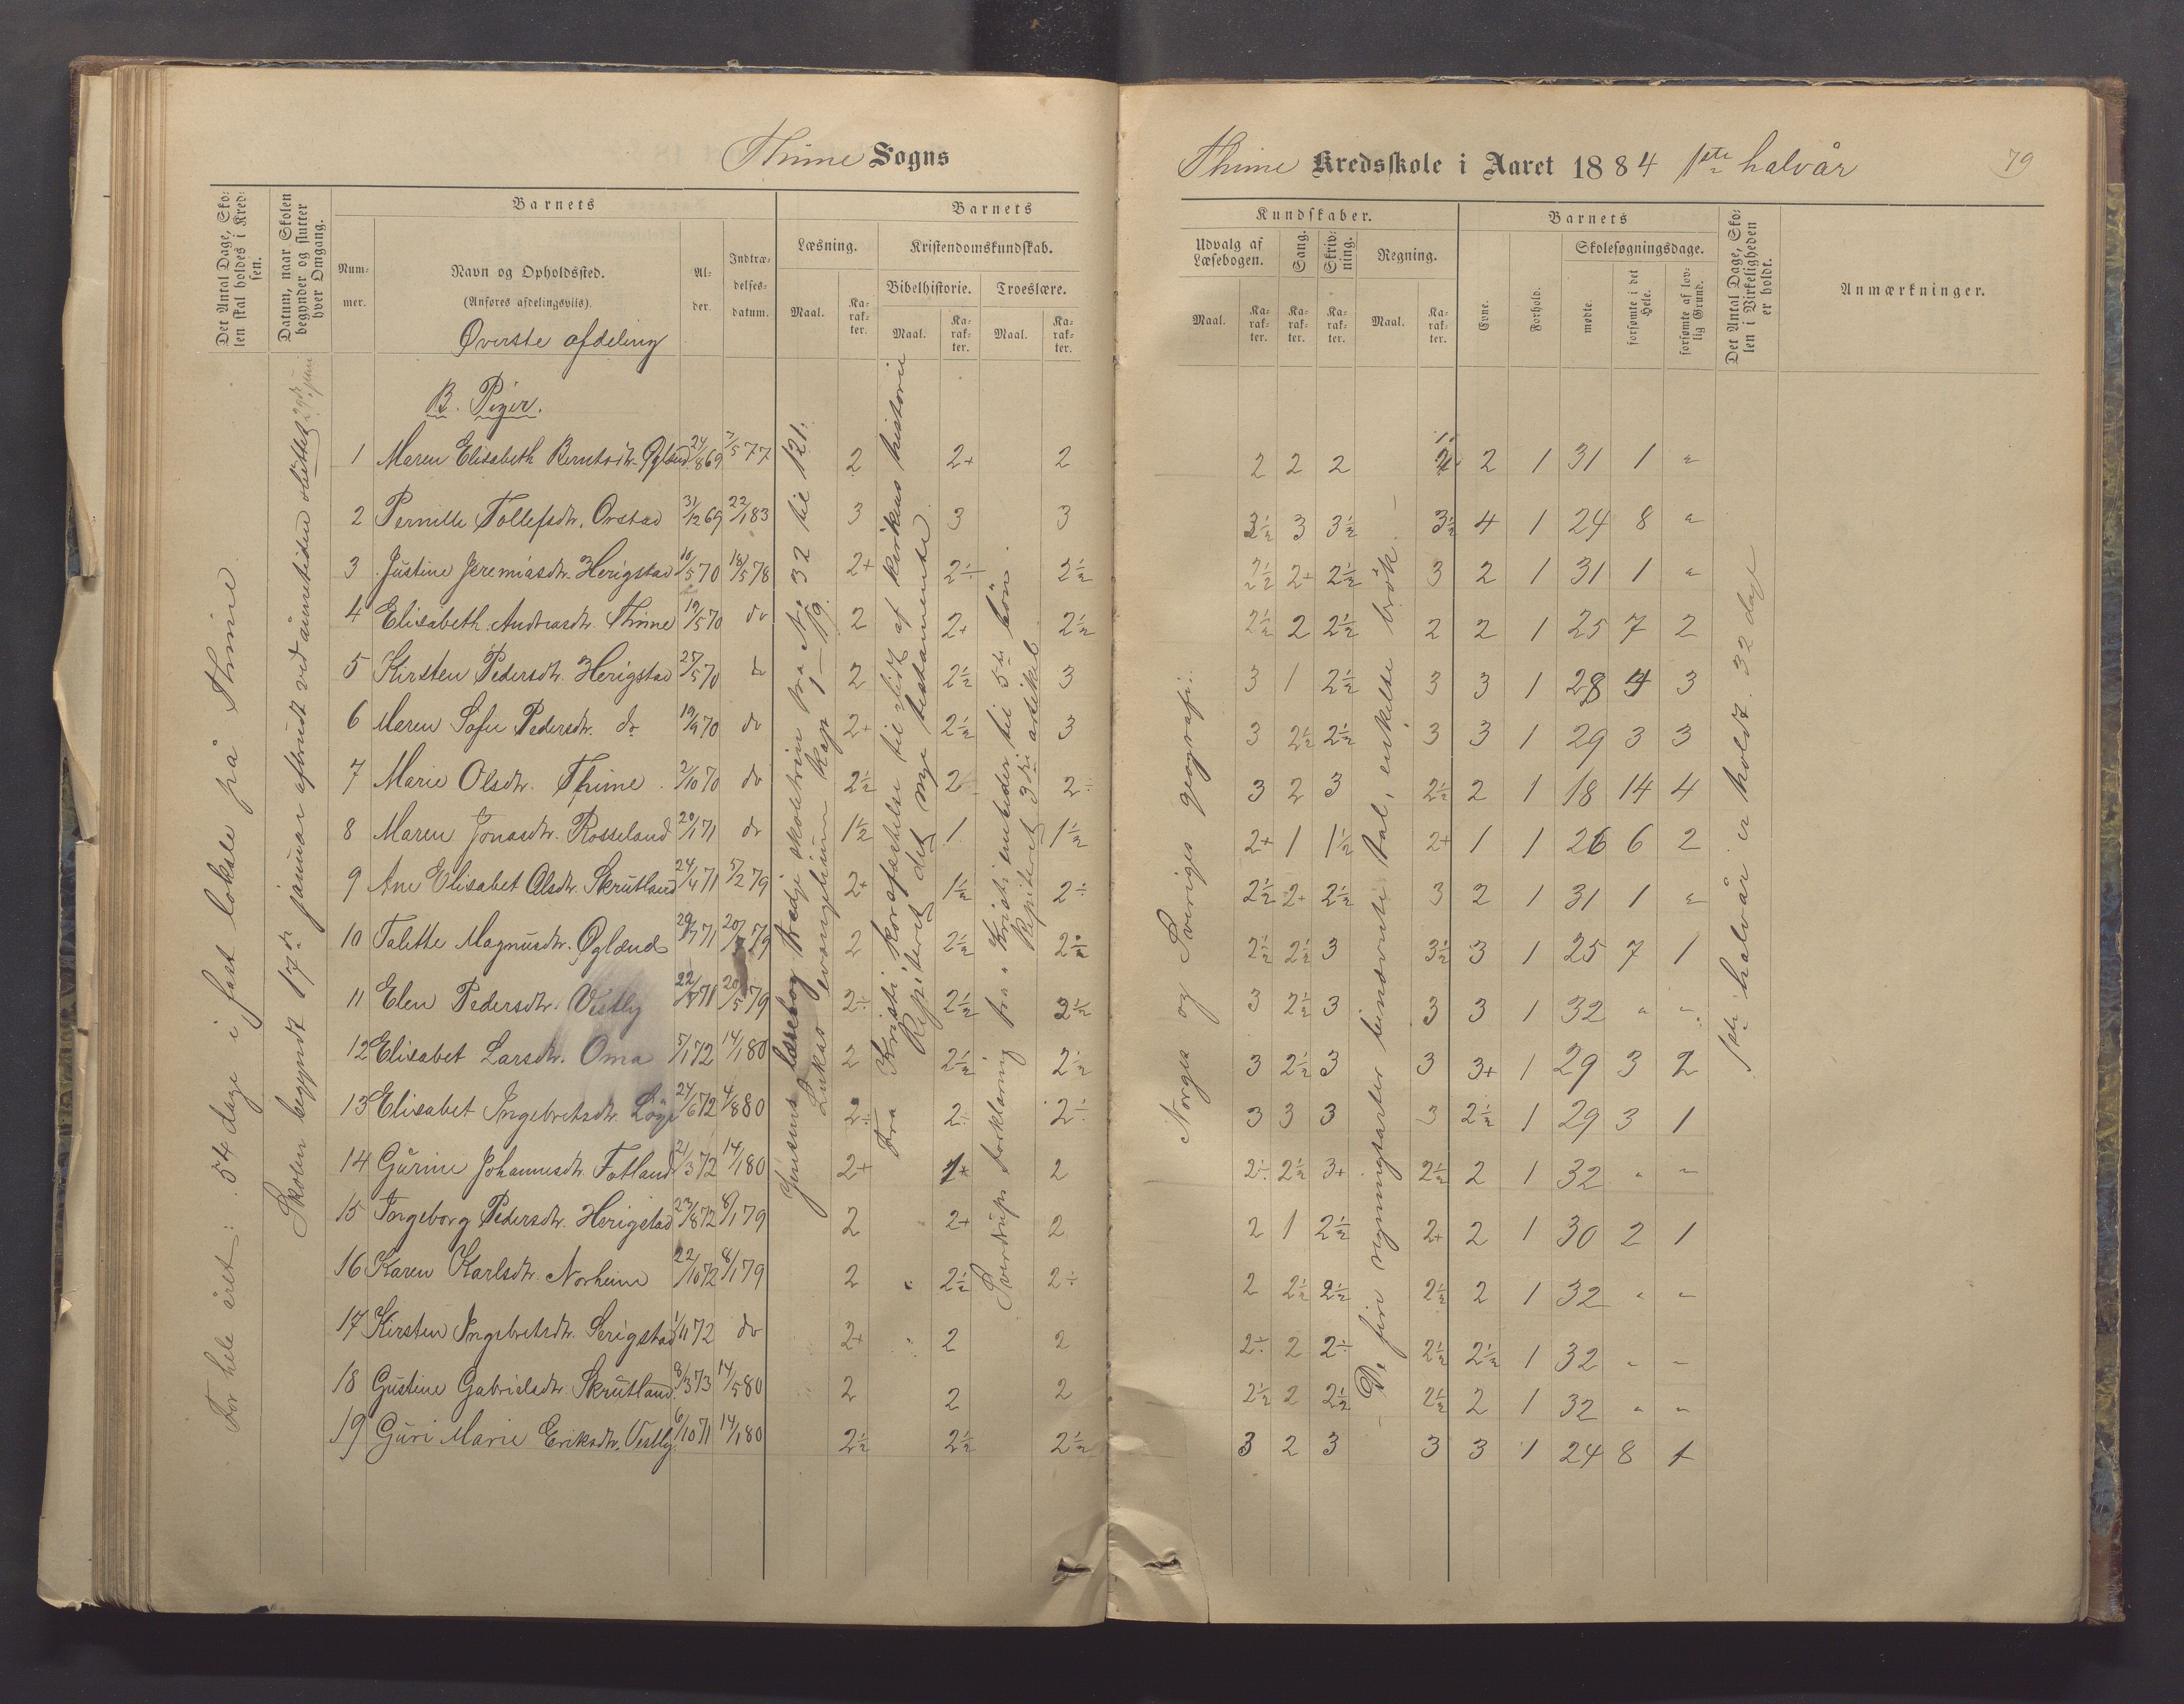 Thime Sogns
Det Antal Dage, Sko-
len skal holdes i Kred-
sen.
Datum, naar Skolen
begynder og slutter
hver Omgang.
Barnets
Num-
mer.
Navn og Opholdssted.
(Anføres afdelingsviis).
Al-
der.
Indtræ-
delses-
datum.
Barnets
Læsning.
Kristendomskundskab.
Bibelhistorie.
Troeslære.
Maal.
Ka-
rak-
ter.
Maal.
Ka-
rak-
ter.
Maal.
Ka-
rak-
ter.
Øverste afdeling
B. Piger.
For hele året: 54 dage i fast lokale på Thime
Skolen begyndt 17de januar afbrudt ved ånnetiden sluttet 29de juni
Jensens læsebog tredje skoletrin fra No 32 til 121.
Lukas evangelium Kap 1-19.
Fra Kristi korsfæstelse til slut af kirkens historie
Repiteret det nye testamente.
Sverdrups forklaring fra "Kristi embeder til 5te bön.
Repiteret 3die artikel
1 Maren Elisabeth Berntsdtr. Øgland 24/8 69 3/5 77 2 2+ 2
2 Pernille Tollefsdtr. Orstad 31/12 69 22/1 83 3 3 3
3 Justine Jeremiasdtr. Herigstad 10/5 70 18/5 78 2+ 2÷ 2½
4 Elisabeth Andreasdtr. Thime 19/5 70 do 2 2+ 2½
5 Kirsten Pedersdtr. Herigstad 27/5 70 do 2 2½ 3
6 Maren Sofie Pedersdtr. do 19/9 70 do 2+ 2½ 3
7 Marie Olsdtr. Thime 2/10 70 do 2½ 2÷ 2÷
8 Maren Jonasdtr. Rosseland 20/1 71 do 1½ 1 1½
9 Ane Elisabet Olsdtr. Skrutland 24/4 71 5/2 79 2+ 1½ 2÷
10 Talette Magnusdtr. Øgland 29/7 71 79 2 2½ 2½
11 Elen Pedersdtr. Vestly 71 20/5 79 2÷ 2½ 2½
12 Elisabet Larsdtr. Oma 5/1 72 14/1 80 2 2½ 2½
13 Elisabet Ingebretsdtr. Löge 24/6 72 4/8 80 2÷ 2÷ 2÷
14 Gurine Johannesdtr. Fotland 21/3 72 14/1 80 2+ 1+ 2
15 Ingeborg Pedersdtr. Herigstad 23/8 72 8/1 79 2 2+ 2
16 Karen Karlsdtr. Norheim 22/10 72 8/1 79 2 2½ 2÷
17 Kirsten Ingebretsdtr. Serigstad 1/11 72 do 2+ 2 2
18 Gustine Gabrielsdtr. Skrutland 8/3 73 14/5 80 2 2 2
19 Guri Marie Eriksdtr. Vestly 6/10 71 14/1 80 2½ 2½ 2½
Thime Kredsskole i Aaret 1884 1ste halvår 79
Kundskaber.
Udvalg af
Læsebogen.
Sang.
Skriv-
ning.
Regning.
Maal.
Ka-
rak-
ter.
Ka-
rak-
ter.
Ka-
rak-
ter.
Maal.
Ka-
rak-
ter.
Barnets
Evne.
Forhold.
Skolesøgningsdage.
mødte.
forsømte i det
Hele.
forsømte af lov-
lig Grund.
Det Antal Dage, Sko-
len i Virkeligheden
er holdt.
Anmærkninger.
Norges og Sveriges geografi.
De fire regningsarter benævnte tal, enkelte brök.
1ste halvår er holdt 32 dage
2 2 2 2 1 31 1 "
3½ 3 3½ 3½ 4 1 24 8 "
2½ 2+ 2½ 3 2 1 31 1 "
2½ 2 2½ 2 2 1 25 7 2
3 1 2½ 3 3 1 28 4 3
3 2½ 2½ 3 3 1 29 3 3
3 2 3 2½ 2 1 18 14 4
2+ 1 1½ 2+ 1 1 26 6 2
2½ 2+ 2½ 3 2 1 31 1 "
2½ 2½ 3 3½ 3 1 25 7 1
3 2½ 3 3 3 1 32 " "
3 2½ 3 3 3+ 1 29 3 2
3 3 3 3 2½ 1 29 3 1
2÷ 2½ 3+ 2½ 2 1 32 " "
2 1 2½ 2+ 2 1 30 2 1
2 2½ 2½ 2½ 2 1 32 " "
2÷ 2 2÷ 2½ 2½ 1 32 " "
2½ 2 2½ 2½ 2 1 32 " "
3 2 3 3 3 1 24 8 1